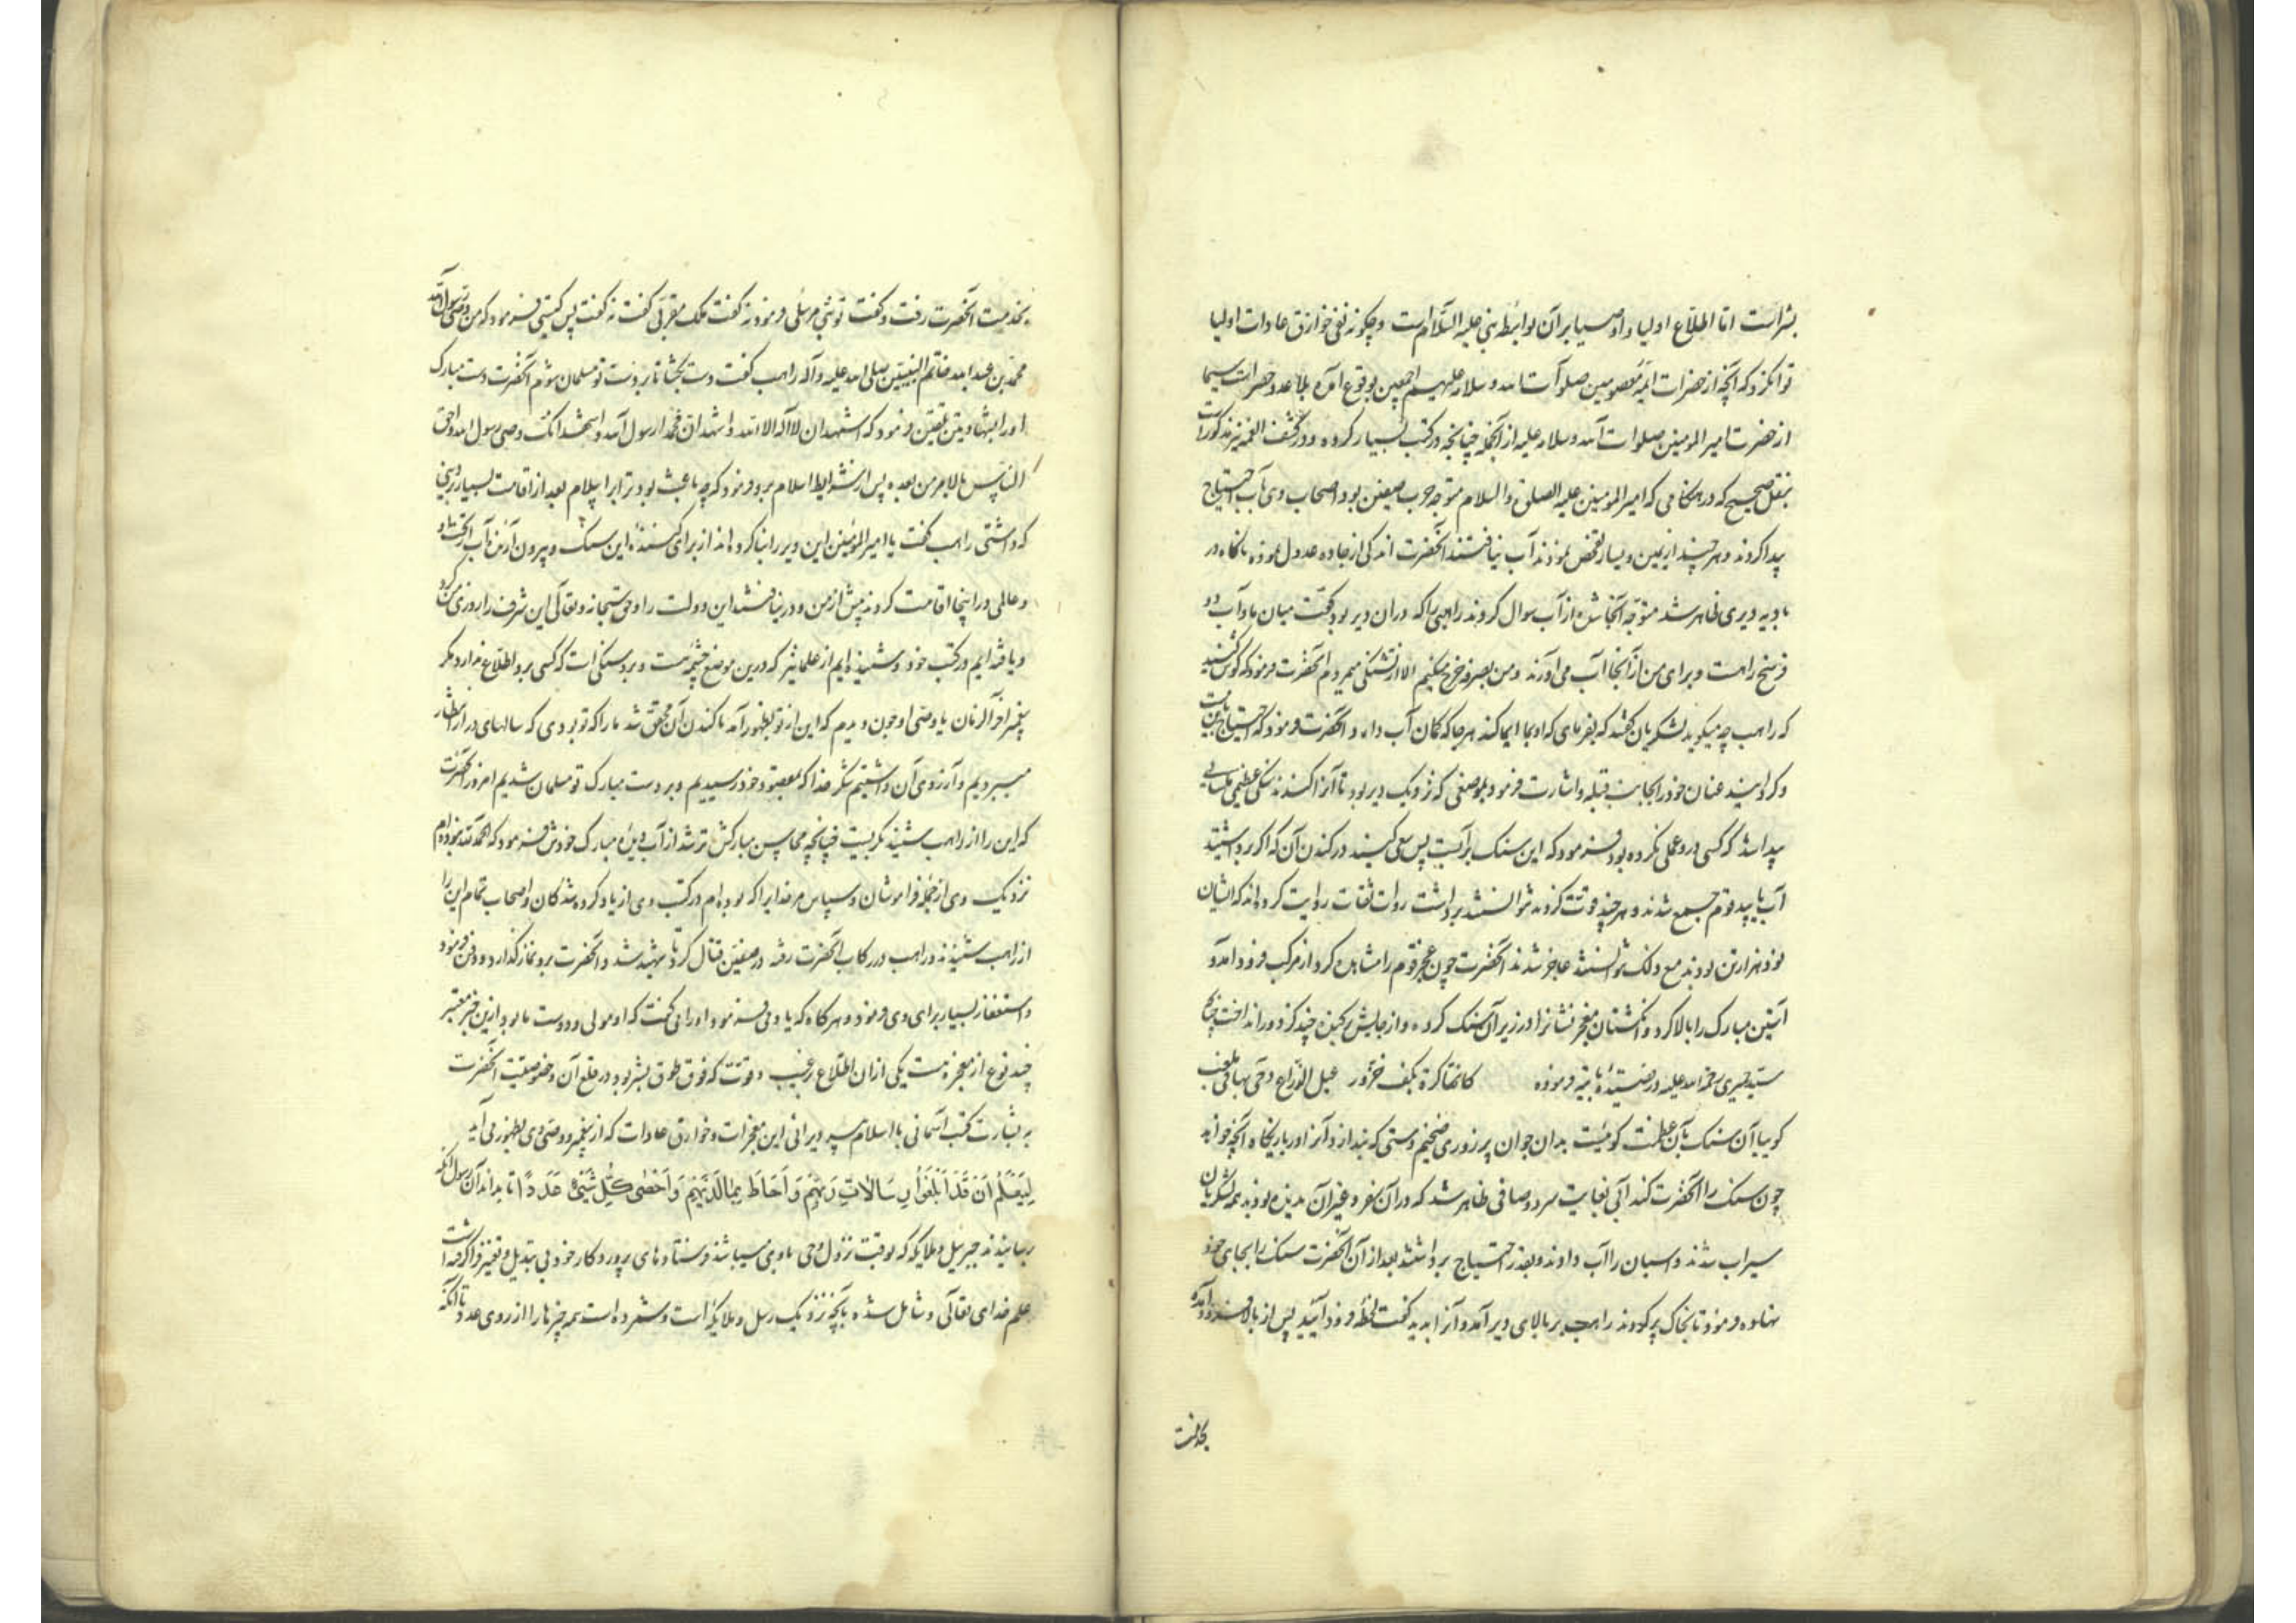 بشر است اما اطلاع اولیا و اوصیا بر آن بواسطه نبی علیه السلام است و چگونه نفی خوارق عادات اولیا
توان کرد که آنچه از حضرات ائمه معصومین صلوات الله و سلامه علیهم اجمعین بوقوع آمده بلا عد و حصر است سیما
از حضرت امیر المومنین صلوات الله و سلامه علیه از آنجمله چنانچه در کتب بسیار کرده و در کشف الغمه نیز مذکور است
بنقل صحیح که در هنگامی که امیر المومنین علیه الصلوة والسلام متوجه حرب صفین بود اصحاب وی بآب احتیاج
پیدا کردند و هر چند از یمین و یسار تفحص نمودند آب نیافتند آنحضرت اندکی از جاده عدول نموده ناگاه در
بادیه دیری ظاهر شد متوجه آنجا شده از آب سوال کردند راهبی را که در آن دیر بود گفت میان ما و آب دو
فرسخ راهست و برای من از آنجا آب می آورند و من بصرفه خرج میکنم الا از تشنگی میمردم آنحضرت فرمود که گوش کنید
که راهب چه میگوید لشکریان گفتند که بفرمای که او بما ایما کند هر جا که گمان آب دارد و آنحضرت فرمود که احتیاج باین نیست
و گردانید عنان خود را بجانب قبله و اشارت فرمود بموضعی که نزدیک دیر بود تا آنرا کندند سنگی عظیمی
پیدا شد که کسی در و عملی نکرده بود فرمود که این سنگ بر آبست پس سعی کنید در کندن آن که اگر برداشتید
آب یابید قوم جمع شدند و هر چند قوت کردند نتوانستند برداشت روات ثقات روایت کرده اند که ایشان
نود هزار تن بودند مع ذلک نتوانستند عاجز شدند آنحضرت چون عجز قوم را مشاهده کرد از مرکب فرود آمد و
آستین مبارک را بالا کرد و انگشتان معجز نشانرا در زیر آن سنگ کرده و از جایش بکند و چند گز دور انداخت چنانچه
سید حمیری رحمه الله علیه در قصیده بائیه فرموده کانها کرة بکف حزور عبل الذراع دحی بها فی ملعب
گویا آن سنگ بآن عظمت گوئیست بدان جوان پر زوری ضخیم دستی که بیندازد آنرا در بازیگاه آنچه خواهد
چون سنگ را آنحضرت کند آبی بغایت سرد و صافی ظاهر شد که در آن سفر و غیر آن ندیده بودند همه لشکریان
سیراب شدند و اسبان را آب دادند و بقدر احتیاج برداشتند بعد از آن آنحضرت سنگ را بجای خود
نهاده و فرمود تا بخاک پر کردند راهب بر بالای دیر آمد و آنرا بدید گفت لحظه فرود آیید پس از بالا فرود آمده
بخدمت
بخدمت آنحضرت رفت و گفت تو نبی مرسلی فرمود نه گفت ملک مقربی گفت نه گفت پس کیستی فرمود که من وصی رسول الله
محمد بن عبد الله خاتم النبیین صلی الله علیه و آله راهب گفت دست بگشا تا بر دست تو مسلمان شوم آنحضرت دست مبارک
او را بشهادتین تلقین فرمود که اشهد ان لا اله الا الله و اشهد ان محمدا رسول الله و اشهد انک وصی رسول الله و احق
الناس بالامر من بعده پس از شرایط اسلام برو فرمود که چه باعث بود ترا بر اسلام بعد از اقامت بسیار بر دینی
که داشتی راهب گفت یا امیر المؤمنین این دیر را بنا کرده اند از برای کننده این سنگ و بیرون آرنده آب از تحت او
و عالمی در اینجا اقامت کردند پیش از من و در نیافتند این دولت را و حق سبحانه و تعالی این شرف را روزی من کرد
و یافته ایم در کتب خود و شنیده ایم از علما نیز که درین موضع چشمه ایست و بر و سنگی است که کسی بر و اطلاع ندارد مگر
پیغمبر آخر الزمان یا وصی او چون دیدم که این از تو بظهور آمد با کندن آن محقق شد ما را که تو بر وی که سالهای دراز انتظار
میبردیم و آرزوی آن داشتیم شکر خدا که بمقصود خود رسیدیم و بر دست مبارک تو مسلمان شدیم امروز آنحضرت
که این را از راهب شنید بگریست چنانچه محاسن مبارکش تر شد از آب دیده مبارک خودش فرمود که الحمد لله نبوده ام
نزدیک وی از جمله فراموشان و سپاس مر خدایرا که بوده ام در کتب وی از یاد کرده شدگان و اصحاب تمام این را
از راهب شنیدند و راهب در رکاب آنحضرت رفته در صفین قتال کرد تا شهید شد و آنحضرت برو نماز گذارد و دفن فرمود
و استغفار بسیار برای وی فرمود و هر گاه که یاد وی فرمود او را می گفت که او مولی و دوست ما بود ازین خبر معتبر
چند نوع از معجزه هست یکی از آن اطلاع بر غیب و قوت که فوق طوق بشر بود در قلع آن و خصوصیت آنحضرت
به بشارت کتب آسمانی با اسلام پیر دیرانی این معجزات و خوارق عادات که از پیغمبر و وصی وی بظهور می آید
لِیَعْلَمَ اَنْ قَدْ اَبْلَغُوا رِسَالَاتِ رَبِّهِمْ وَ اَحَاطَ بِمَا لَدَیْهِمْ وَ اَحْصٰی کُلَّ شَیْءٍ عَدَدًا تا بداند آن رسول آنکه
رسانیدند جبرئیل و ملایکه که بوقت نزول وحی با وی میباشند فرستاده های پروردگار خود بی تبدیل و تغییر و فراگرفته است
علم خدای تعالی و شامل شده بآنچه نزدیک رسل و ملایکه است و شمرده است همه چیزها را از روی عدد تا آنکه